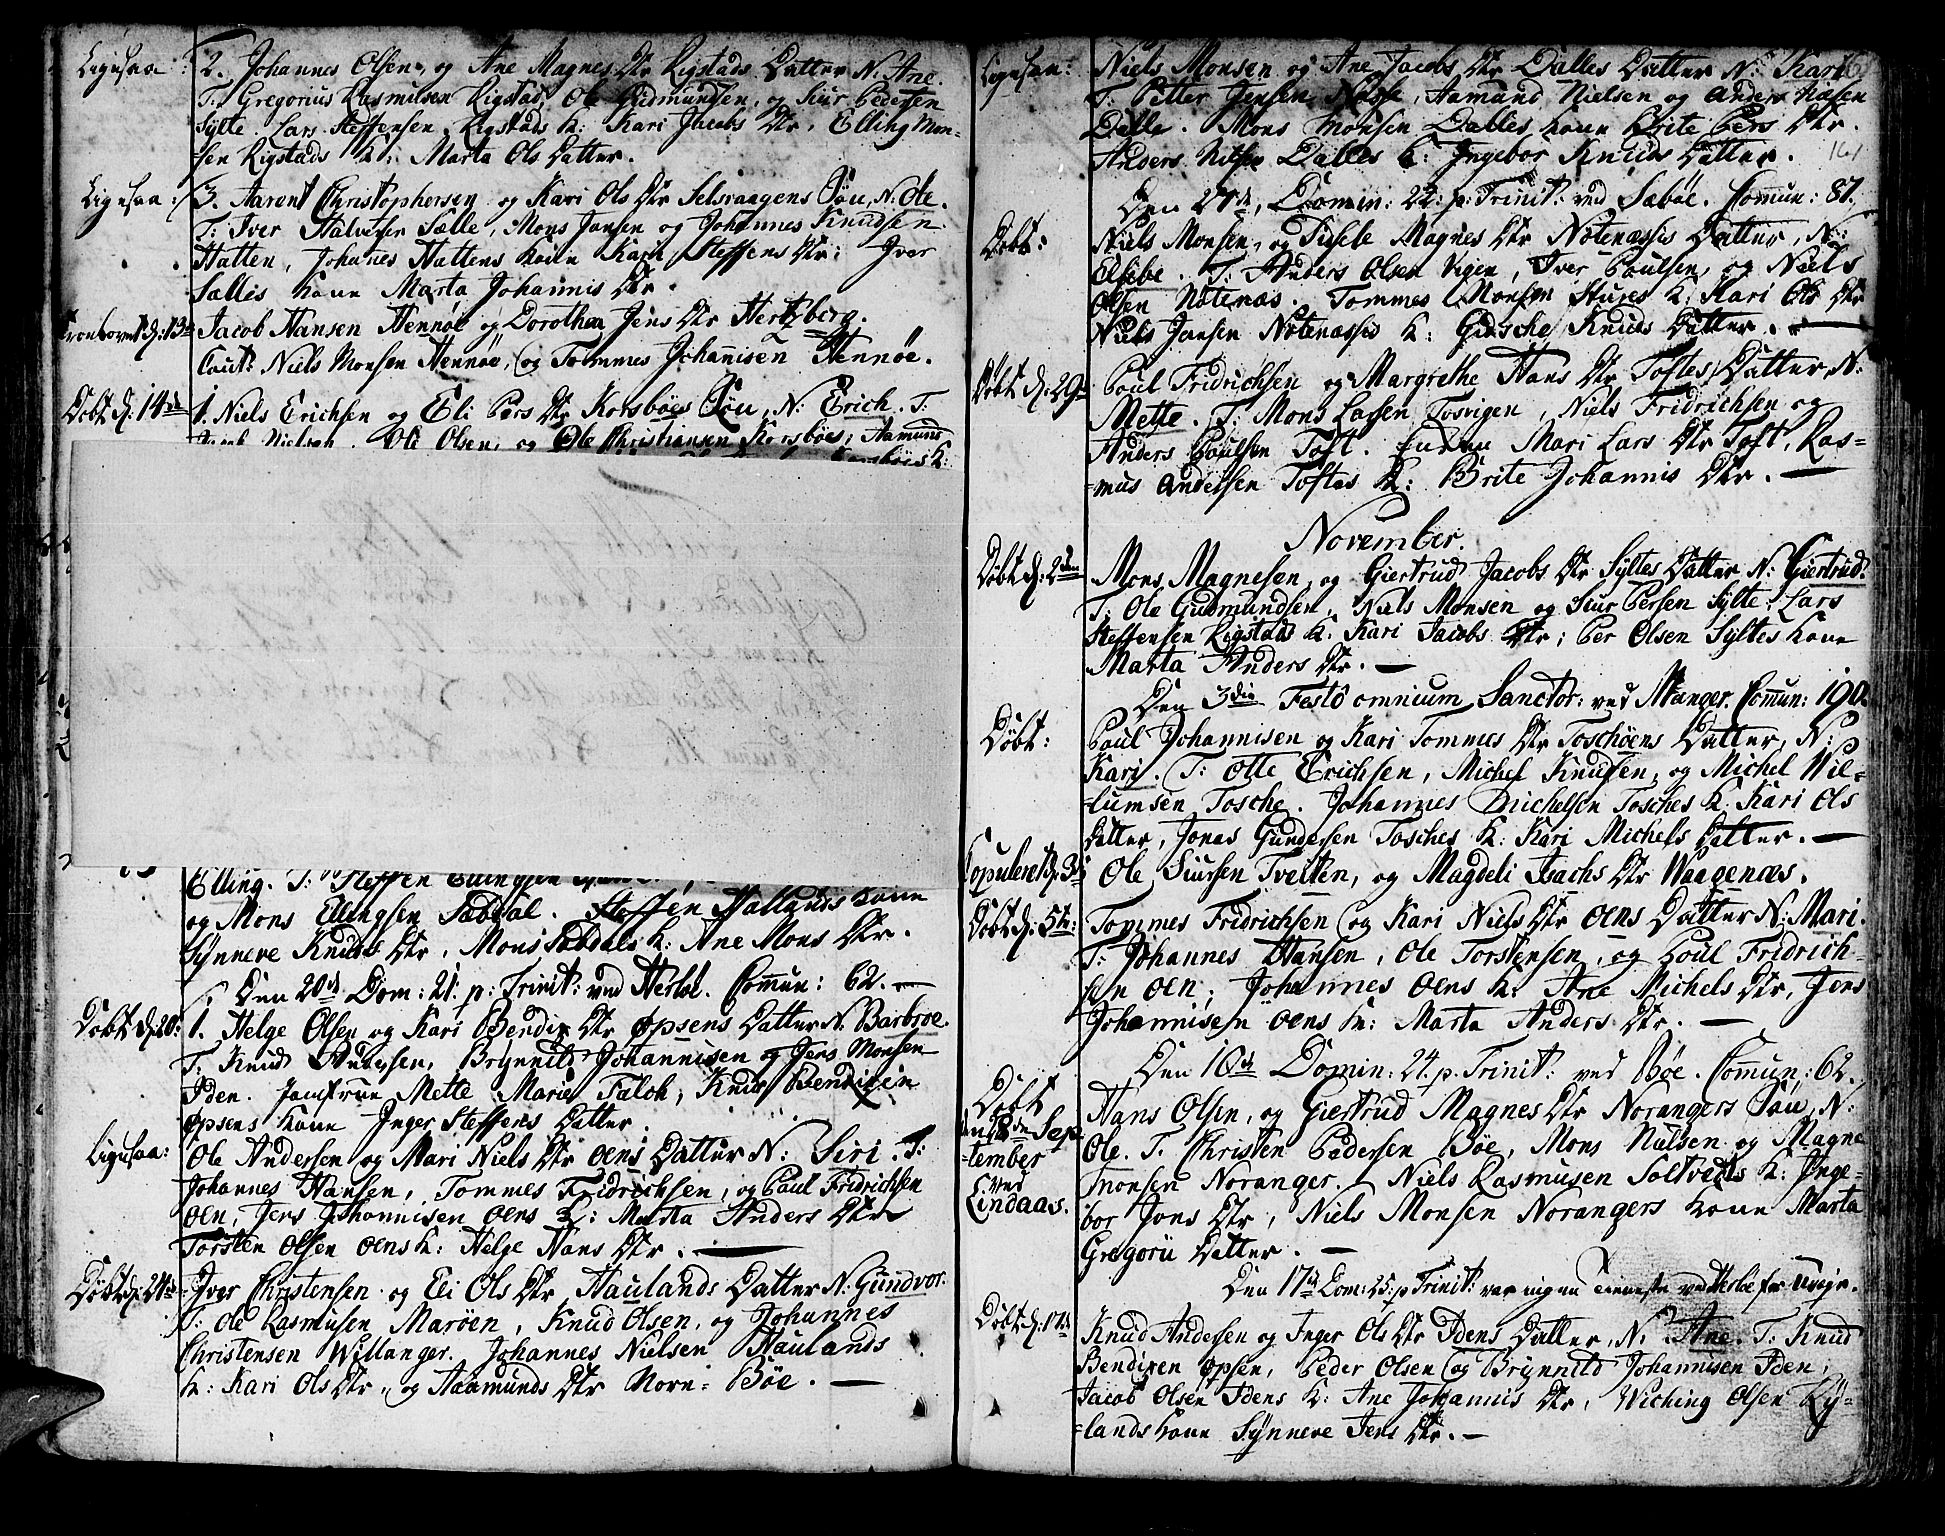 Ligesaa: 2. Johannes Olsen, og Ane Magnes Dtr Rigstads Datter N: Ane.
T: Gregorius Rasmusen Rigstad, Ole Gudmundsen, og Siur Pedersen
Sylte. Lars Steffensen Rigstads K: Kari Jacobs Dtr, Elling Mon-
sen Rigstads K: Marta Ols Datter.
Ligesaa: 3. Aarent Christophersen og Kari Ols Dtr Selsvaagens Søn, N: Ole.
T: Iver Halversen Sælle, Mons Jansen og Johannes Knudsen
Hatten, Johanes Hattens Kone Kari Steffens Dtr; Iver
Sælles Kone Marta Johannis Dtr.
Trolovet d: 13de Jacob Hansen Hennøe og Dorothea Jens Dtr Hertzberg.
Caut: Niels Monsen Hennøe, og Tommes Johannisen Hennøe.
Døbt d: 14de 1. Niels Erichsen og Eli Pers Dtr Korsbøes Søn, N: Erich. T:
Jacob Nielsen, Ole Olsen, og Ole Christiansen Korsbøes; Aamund
Korsbøes K:
Elling. T: Steffen Ellingsen
og Mons Ellingsen Sæbdal. Steffen Hallands Kone
Synneve Knuds Dtr, Mons Sæbdals K: Ane Mons Dtr.
Den 20de Dom: 21. p: Trinit: ved Herløe. Comun: 62.
Døbt d: 20: 1. Helge Olsen og Kari Bendix Dtr Øpsens Datter N: Barbroe.
T: Knud Andersen, Brynnild Johannisen og Jens Monsen
Iden. Jomfrue Mette Marie Faloh; Knud Bendixen
Øpsens Kone Inger Steffens Datter.
Ligesaa: Ole Andersen og Mari Niels Dtr Oens Datter N: Siri. T:
Johannes Hansen, Tommes Fridrichsen, og Poul Fridrichsen
Oen, Jens Johannisen Oens K: Marta Anders Dtr
Torsten Olsen Oens K: Helge Hans Dtr.
Døbt d: 24de Iver Christensen og Eli Ols Dtr Haulands Datter N: Gundvor.
T: Ole Rasmusen Marøen, Knud Olsen, og Johannes
Christensen Willanger. Johannes Nielsen Haulands
K: Kari Ols Dtr, og Aamunds Dtr Norn-Bøe.
Ligesaa: Niels Monsen og Ane Jacobs Dtr Dalles Datter N: Kari
T: Petter Jensen, Aamund Nielsen og Anders
Dalle. Mons Monsen Dalles Kone Brite Pers Dtr.
Anders Nilsen Dalles K: Ingebor Knuds Datter.
161
Den 27de, Domin: 22: p: Trinit: ved Sæbøe. Comun: 87.
Døbt: Niels Monsen, og Sidsele Magnes Dtr Notenæsses Datter, N:
Elsebe. T: Anders Olsen Vigen, Iver Poulsen, og Niels
Olsen Notenæs. Tommes Monsen Stures K: Kari Ols Dtr
Niels Jansen Notenæsses K: Gidsche Knuds Datter.
Døbt d: 29 Poul Fridrichsen og Margrethe Hans Dtr Toftes Datter, N:
Mette. T: Mons Larsen Tosvigen, Niels Fridrichsen og
Anders Poulsen Toft. Enken Mari Lars Dtr Toft, Ras-
mus Andersen Toftes K: Brite Johannis Dtr.
November.
Døbt d: 2den Mons Magnesen, og Giertrud Jacobs Dtr Syltes Datter N: Giertrud.
T: Ole Gudmundsen, Niels Monsen og Siur Persen Sylte: Lars
Steffensen Rigstads K. Kari Jacobs Dtr; Per Olsen Syltes Kone
Marta Anders Dtr.
Den 3die Festo omnium Sanctor: ved Manger. Comun: 190.
Døbt: Poul Johannisen og Kari Tommes Dtr Toschøens Datter, N:
Kari. T: Otte Erichsen, Michel Knudsen, og Michel Wil-
lumsen Tosche. Johannes Michelsen Tosches K. Kari Ols
Datter, Jonas Gundersen Tosches K: Kari Michels Datter.
Copuleret d: 3: Ole Siursen Tveiten, og Magdeli Isachs Dtr Waagenæs.
Døbt d: 5te: Tommes Fridrichsen og Kari Niels Dtr Oens Datter N: Mari.
T: Johannes Hansen, Ole Torstensen, og Poul Fridrich-
sen Oen; Johannes Oens K: Ane Michels Dtr, Jens
Johannisen Oens K: Marta Anders Dtr.
Den 10de Domin: 24. p. Trinit: ved Bøe. Comun: 62.
Døbt
September
ved
Lindaas. Hans Olsen, og Giertrud Magnes Dtr Norangers Søn, N:
Ole. T. Christen Pedersen Bøe, Mons Nilsen og Magne
Monsen Noranger. Niels Rasmusen Soltvedts K: Inge-
bor Jons Dtr, Niels Monsen Norangers Kone Marta
Gregorii Datter.
Den 17de Dom: 25: p Trinit: var ingen Tieneste ved Herløe for Uvejr.
Døbt d: 17de Knud Andersen og Inger Ols Dtr Idens Datter, N: Ane. T: Knud
Bendixen Øpsen, Peder Olsen og Brynnild Johannisen Iden;
Jacob Olsen Idens K: Ane Johannis Dtr, Wiching Olsen Ry-
lands Kone Synneve Jens Dtr.